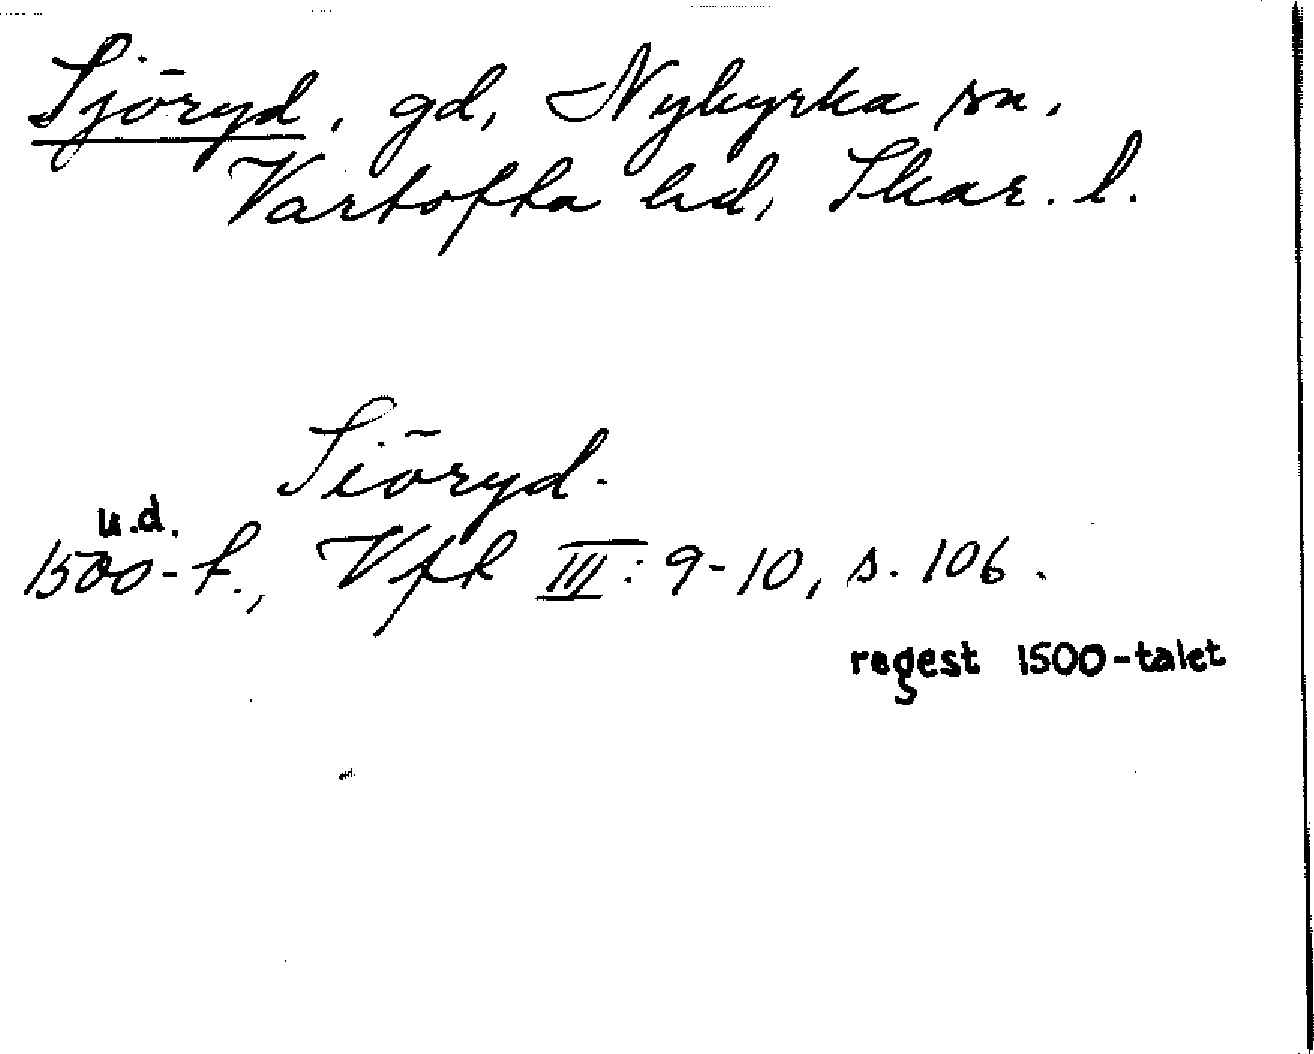 Sjöryd, gd, Nykyrka sn,
Vartofta hd, Skar. l.
Siöryd.
u.d.
1500-t., Vfk III: 9-10, s. 106.
regest 1500-talet